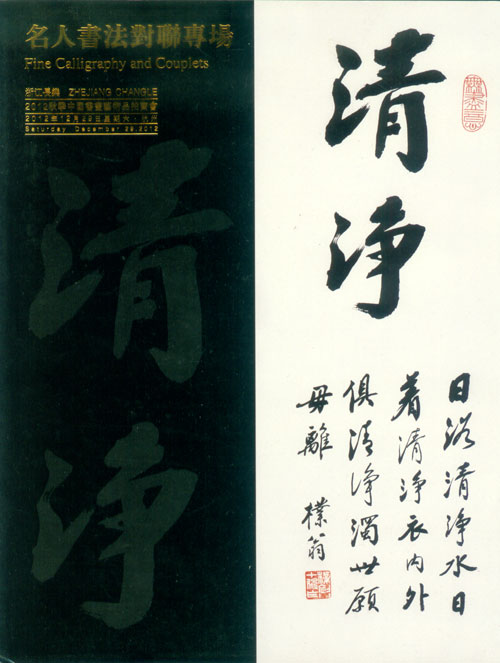 名人書法對聯專場
Fine Calligraphy and Couplets
浙江長樂 ZHEJIANG CHANGLE
2012秋季中國書畫藝術品拍賣會
2012年12月29日星期六·杭州
Saturday December 29,2012
清
净
清
净
日浴清浄水日
着清浄衣内外
俱清浄濁世願
毋離
樸翁